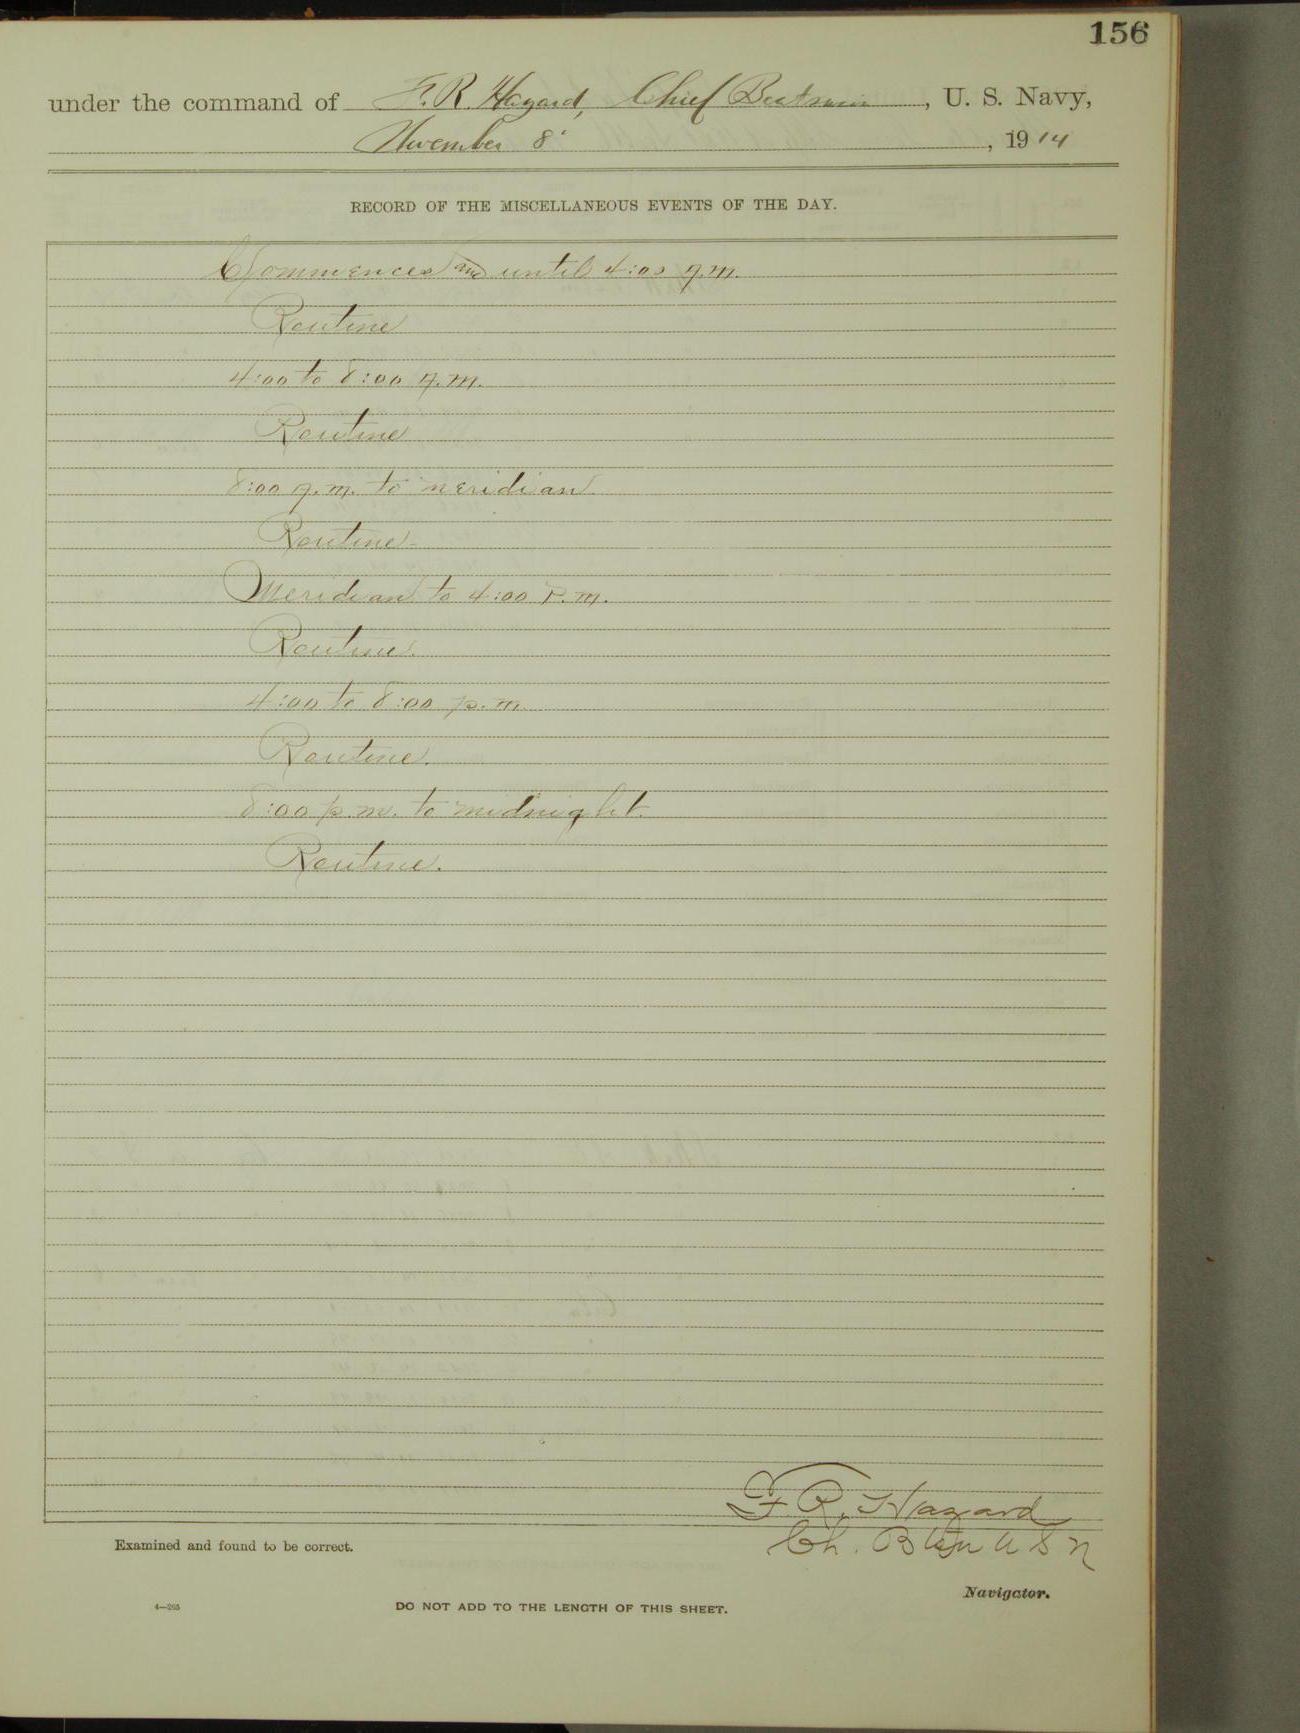 156
under the command of F. R. Hazard, Chief Boatswain, U. S. Navy,
November 8, 1914
RECORD OF THE MISCELLANEOUS EVENTS OF THE DAY.
Commences and until 4:00 a.m.
Routine
4:00 to 8:00 a.m.
Routine
8:00 a.m. to meridian.
Routine.
Meridian to 4:00 P.m.
Routine.
4:00 to 8:00 p.m.
Routine.
8:00 p.m. to midnight.
Routine.
F R. Hazard
Ch. Btsn U S N
Examined and found to be correct.
Navigator.
4—265
DO NOT ADD TO THE LENGTH OF THIS SHEET.